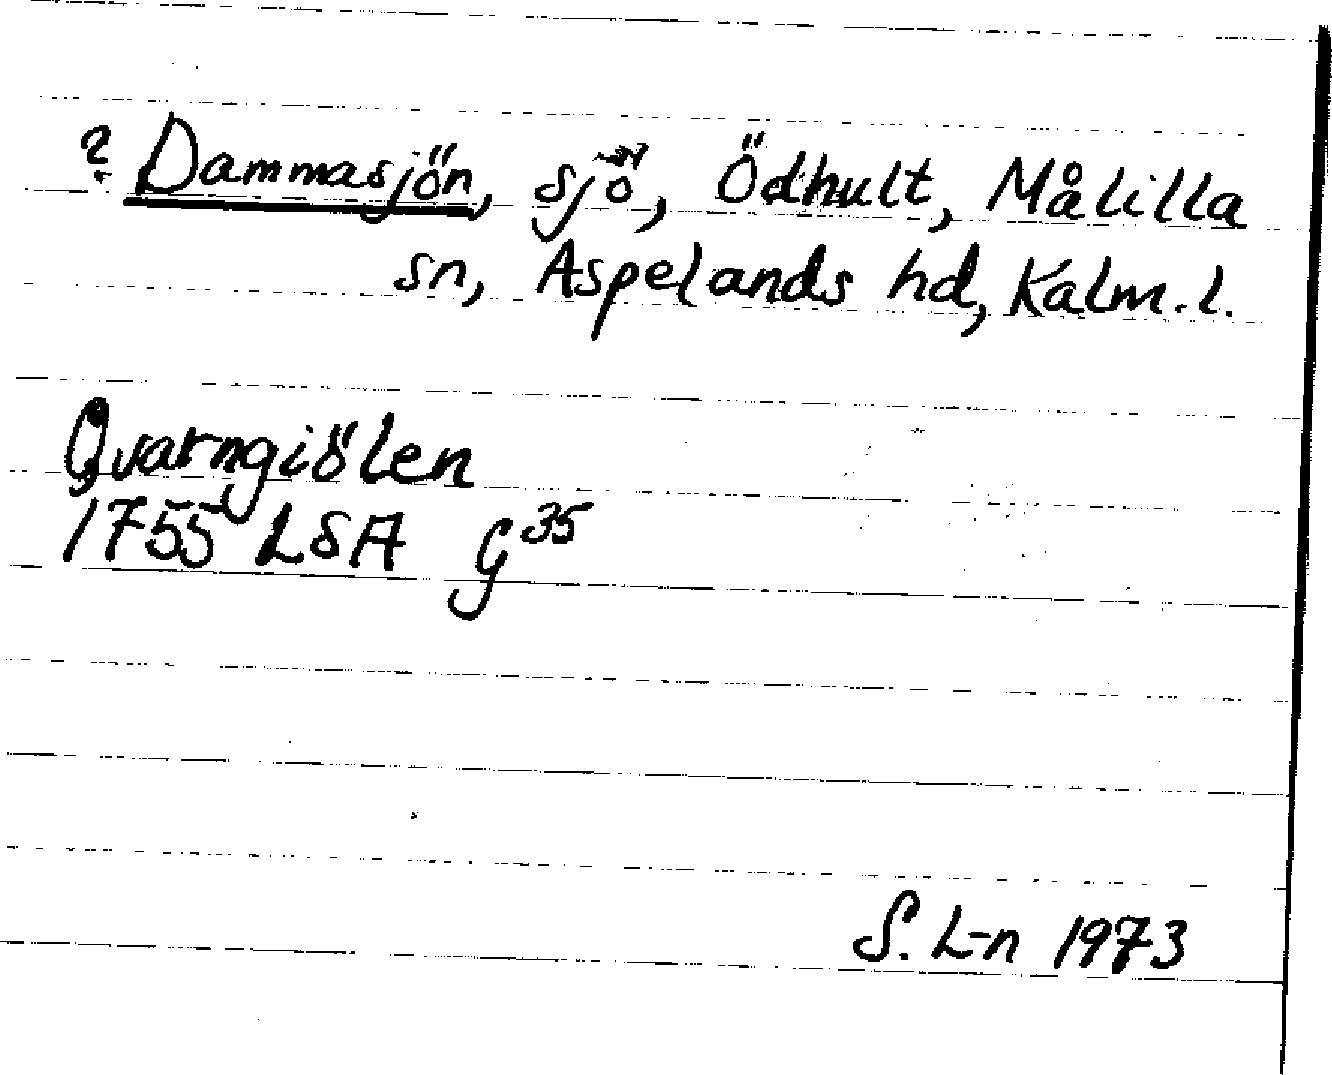 ? Dammasjön, sjö, Ödhult, Målilla
sn, Aspelands hd, Kalm. l.
Qvarngiölen
1755 LSA G 35
S. L-n 1973